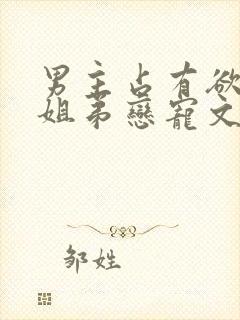 男主占有欲
姐弟戀寵文
邹姓